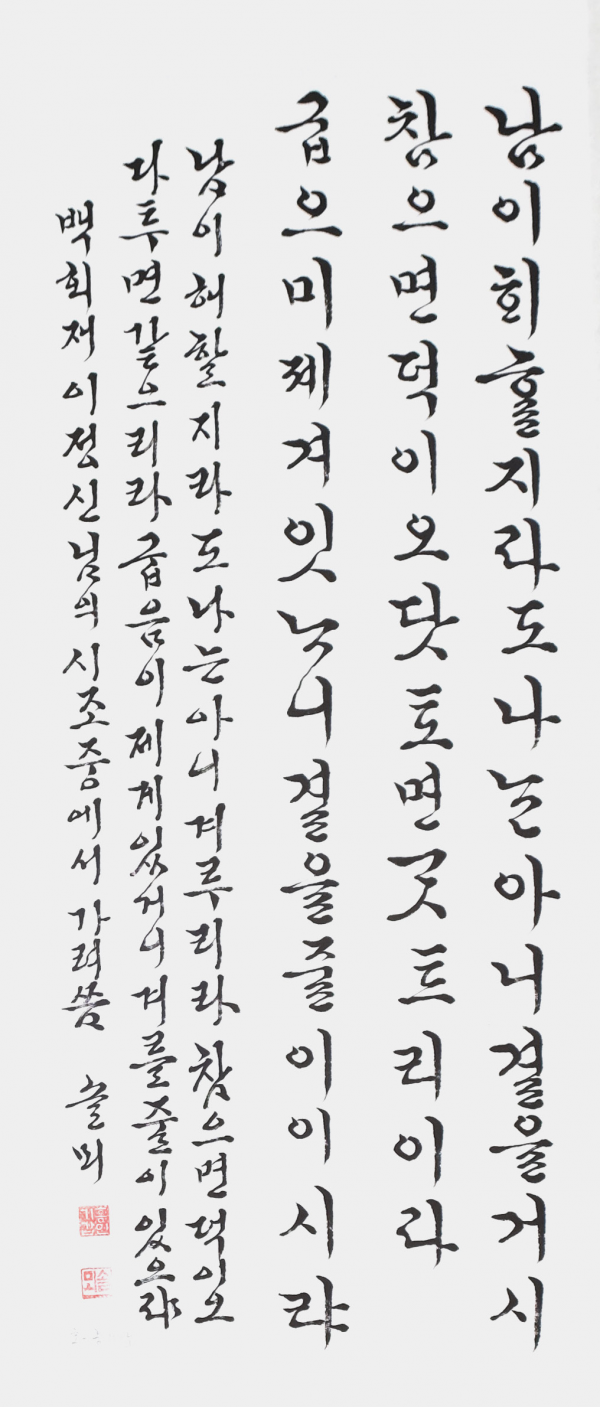 남이희홀지라도나는아니결을거시
참으면덕이오닷토면ᄀᆞᆺ트리이라
굽으미제겨잇ᄂᆞ니결을줄이이시랴
남이해할지라도나는아니겨루리라참으면덕이오
다투면같으리라굽음이제게있거니겨룰줄이있으랴
백회재이정신님의시조중에서가려씀 솔뫼